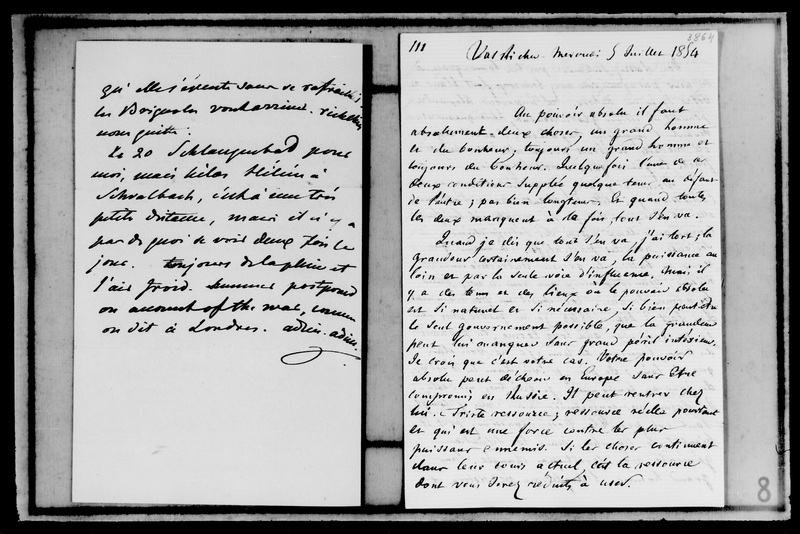 qu'elle s'évente sans se rafraichir
les Boignoles vont arriver. richelieu
nous quitte.
Le 20 Schlangenbad pour
moi, mais hélas Hélène à
Schwalbach, c'est à une très
petite distance, mais il n'y a
pas de quoi se voir deux fois le
jour. toujours de la pluie et
l'air froid. Summer postponed
on account of the war, comme
on dit à Londres. adieu. adieu.
111
3864
Val Richer Mercredi 5 Juillet 1854
Au pouvoir absolu il faut
absolument deux choses, un grand homme
et du bonheur ; toujours un grand homme et
toujours du bonheur. Quelquefois l'une de ces
deux conditions supplée quelque tems au défaut
de l'autre ; pas bien longtems. Et quand toutes
les deux manquent à la fois, tout s'en va.
Quand je dis que tout s'en va, j'ai tort ; la
grandeur certainement s'en va, la puissance au
loin et par la seule voie d'influence. Mais il
y a des tems et des lieux où le pouvoir absolu
est si naturel et si nécessaire, si bien peut-être
le seul gouvernement possible, que la grandeur
peut lui manquer sans grand péril intérieur.
Je crois que c'est votre cas. Votre pouvoir
absolu peut déchoir en Europe sans être
compromis en Russie. Il peut rentrer chez
lui. Triste ressource ; ressource réelle pourtant
et qui est une force contre les plus
puissans ennemis. Si les choses continuent
dans leur cours actuel, c'est la ressource
dont vous serez réduits à user.
8